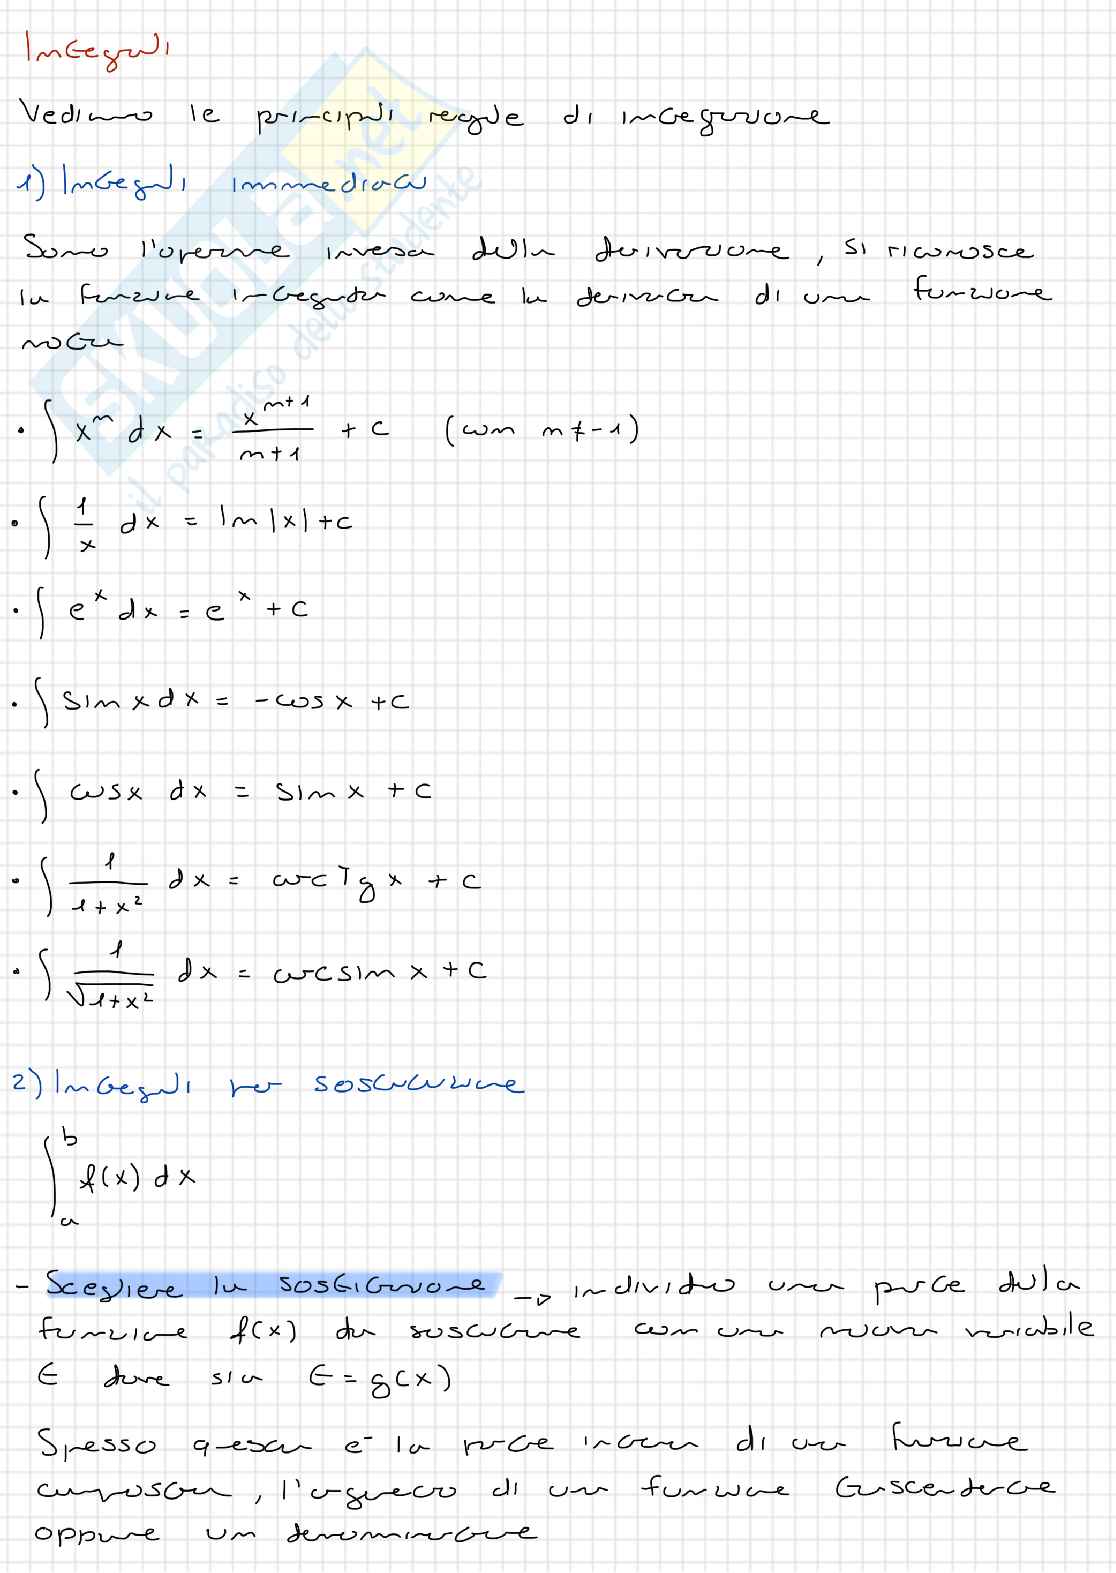 Integrali
Vediamo le principali regole di integrazione
1) Integrali immediati
Sono l'operazione inversa della derivazione, si riconosce
la funzione integranda come la derivata di una funzione
nota
• ∫ xⁿ dx = xⁿ⁺¹/(n+1) + c (con n ≠ -1)
• ∫ 1/x dx = ln |x| + c
• ∫ eˣ dx = eˣ + c
• ∫ sin x dx = -cos x + c
• ∫ cos x dx = sin x + c
• ∫ 1/(1+x²) dx = arcTg x + c
• ∫ 1/√(1+x²) dx = arcsin x + c
2) Integrali per sostituzione
∫ₐᵇ f(x) dx
- Scegliere la sostituzione -> individuo una parte della
funzione f(x) da sostituire con una nuova variabile
t dove sia t = g(x)
Spesso questa è la parte interna di una funzione
composta, l'argomento di una funzione trascendente
oppure un denominatore
SKUOLA.net
il paradiso dello studente